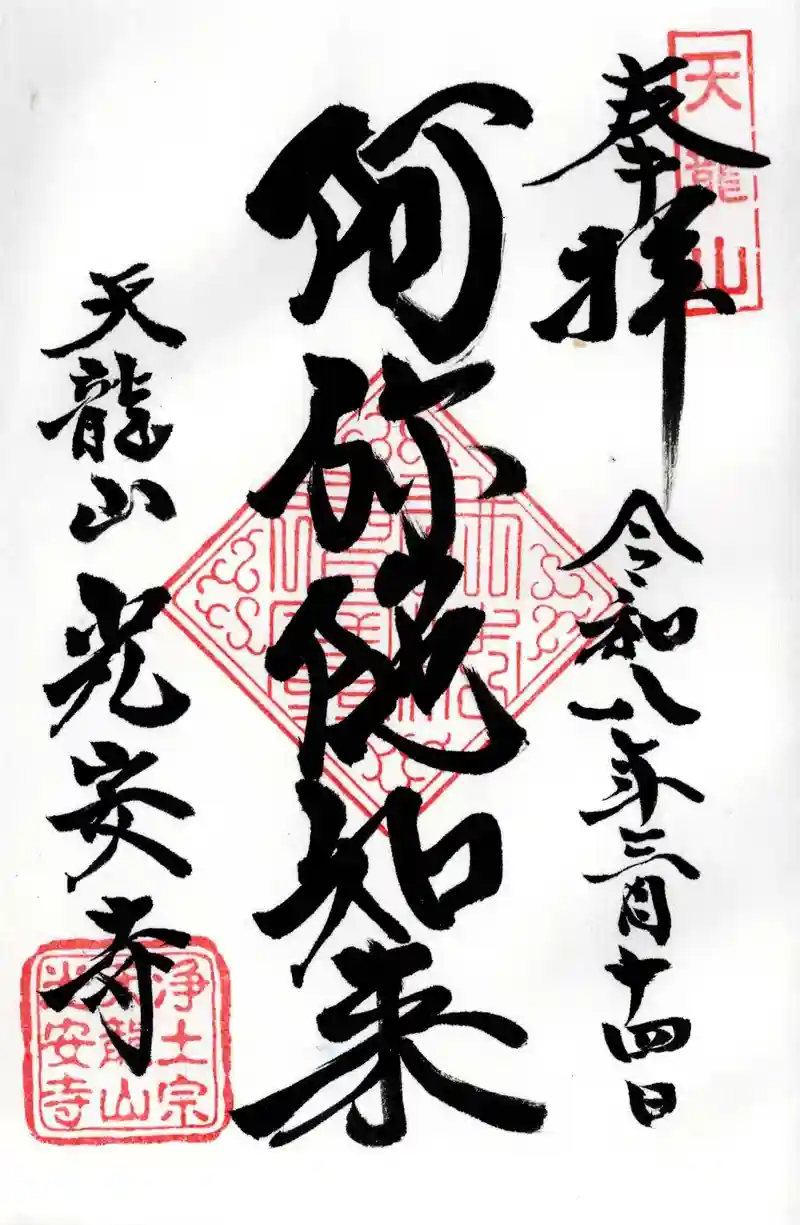 天龍山
奉拝
令和八年三月十四日
阿弥陀如来
天龍山
光安寺
浄土宗
天龍山
光安寺